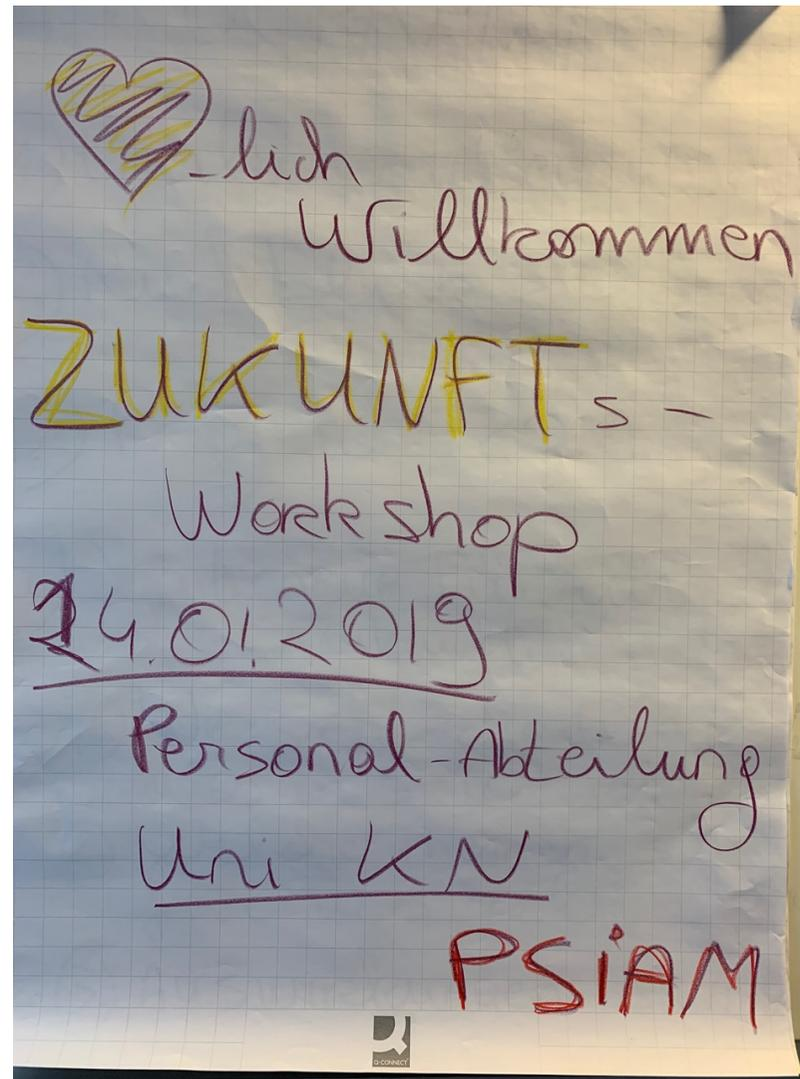 -lich
Willkommen
ZUKUNFTs-
Workshop
14.01.2019
Personal-Abteilung
Uni KN
PSiAM
Q-CONNECT